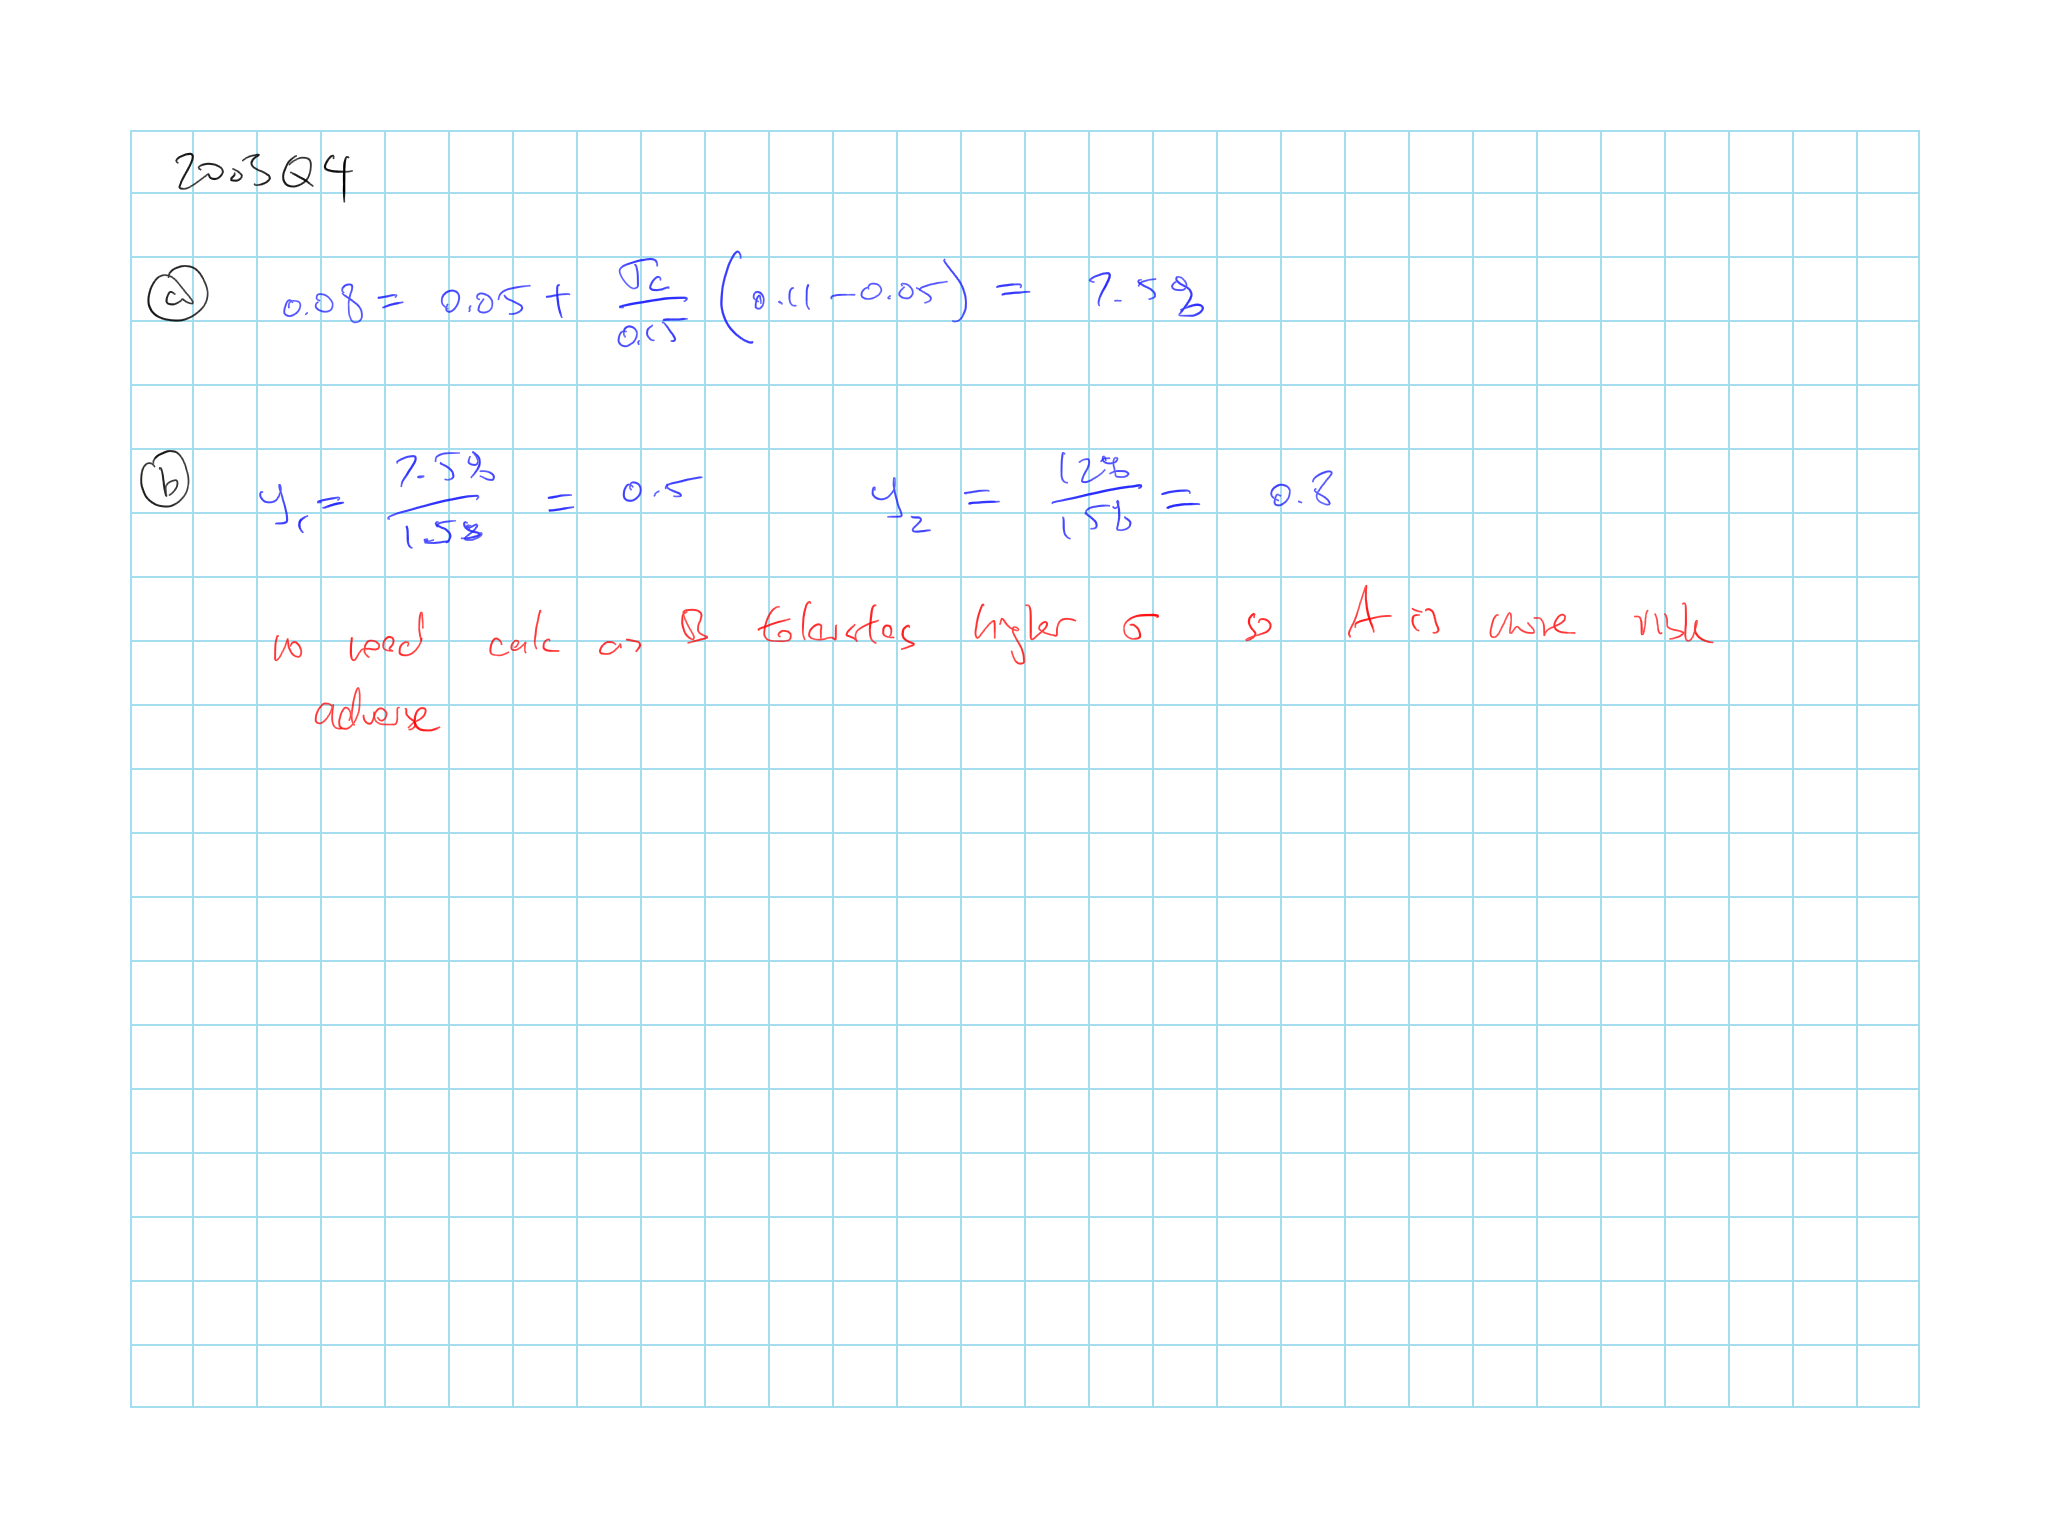 2003 Q4
(a) 0.08 = 0.05 + σc/0.15 (0.11 - 0.05) = 7.5%
(b) y1 = 7.5%/15% = 0.5 y2 = 12%/15% = 0.8
no need calc as B tolerates higher σ so A is more risk
adverse